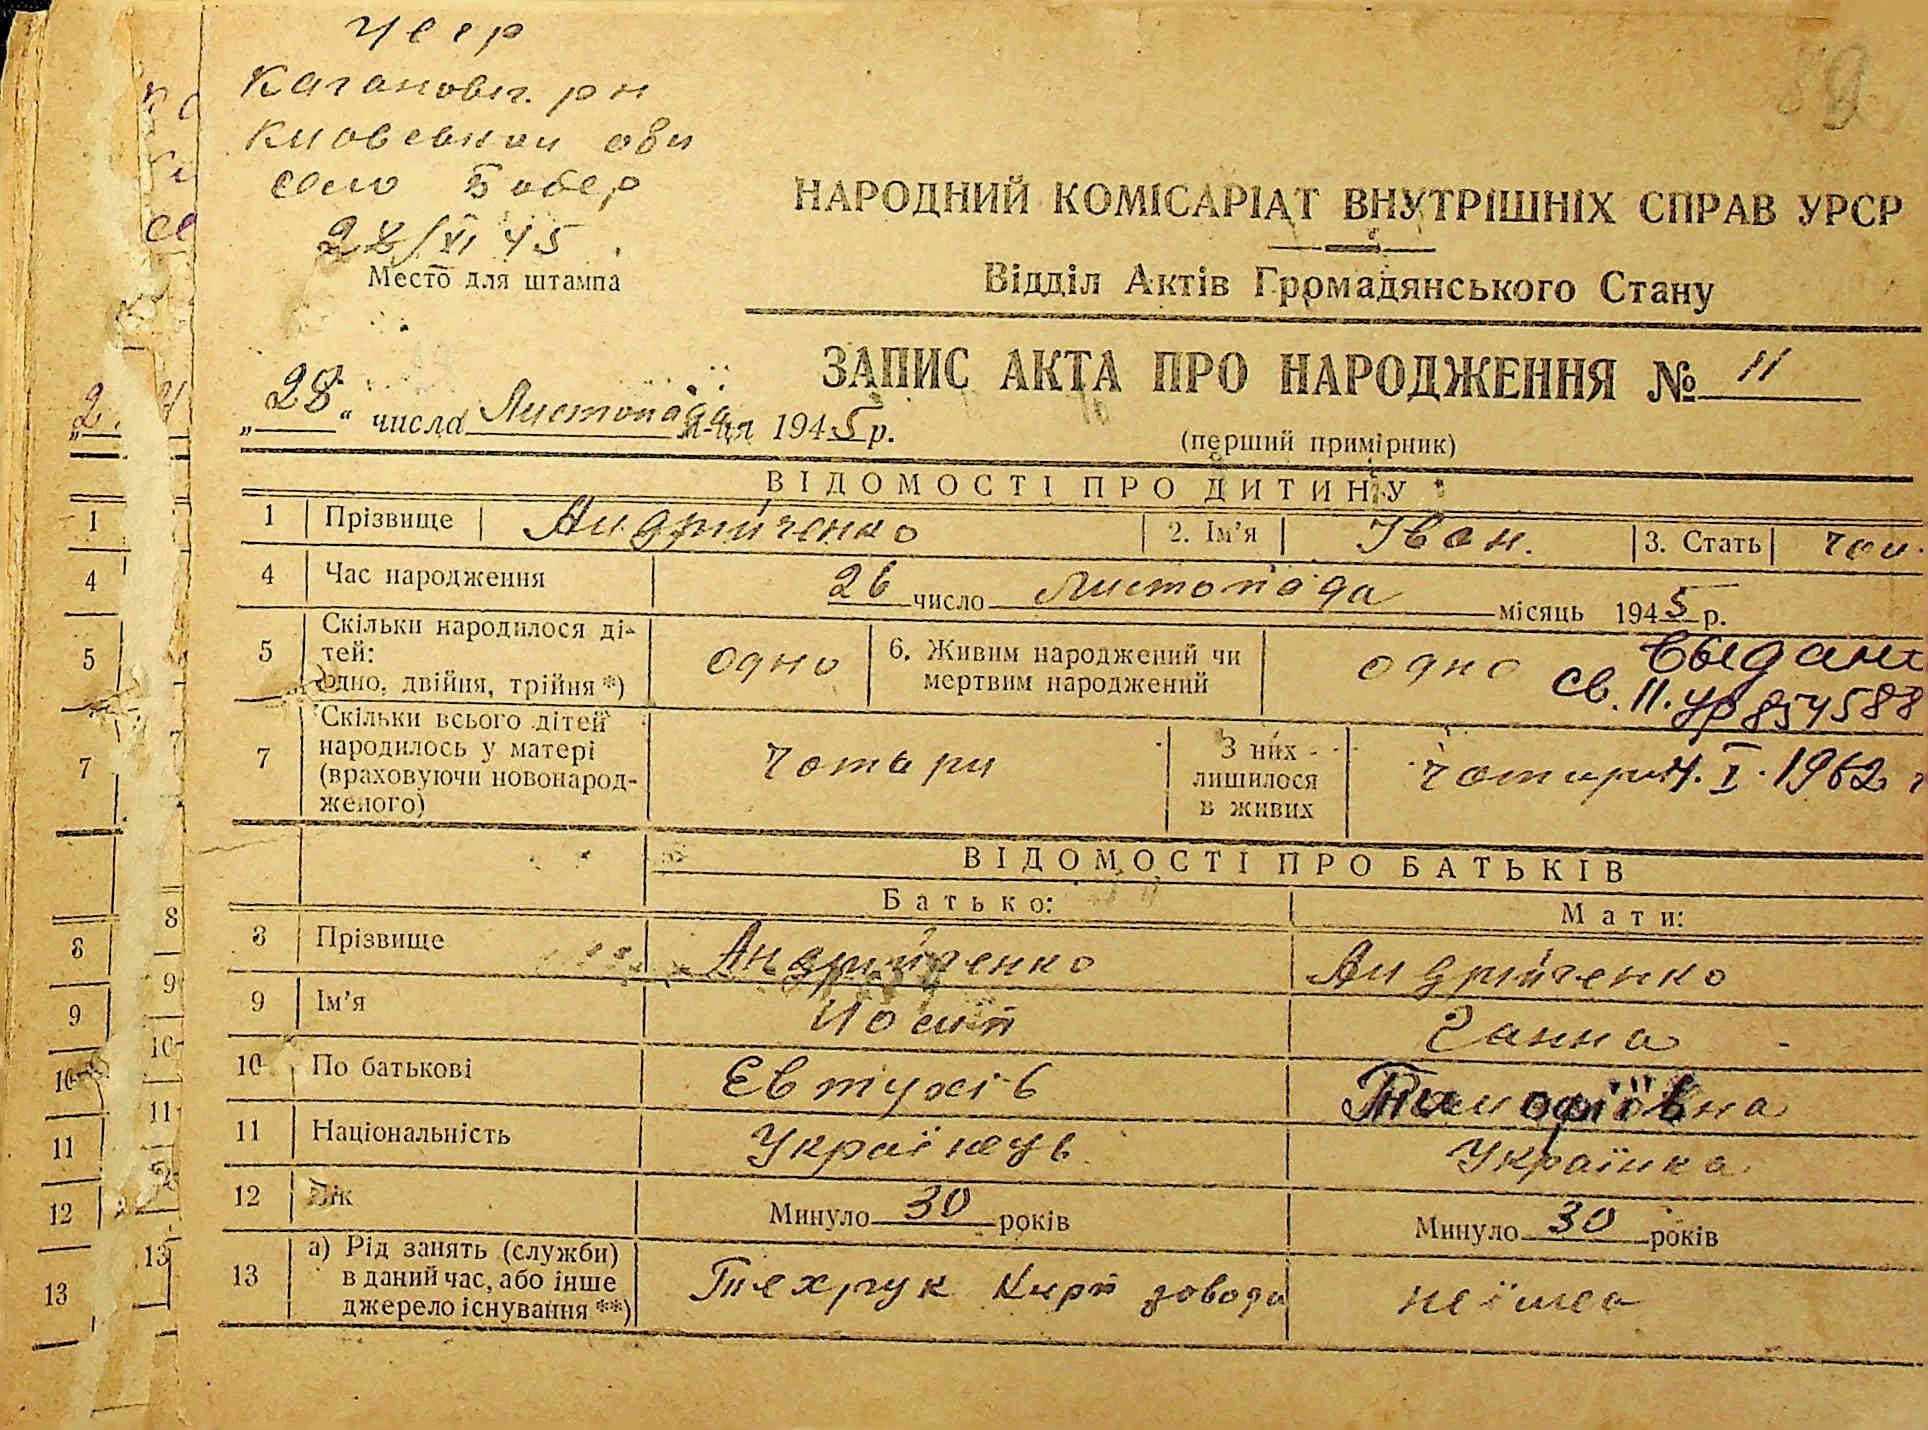 УССР
Каганович. рн
Киовськои обл
село Бобер
28/XI 45
Место для штампа
89
НАРОДНИЙ КОМІСАРІАТ ВНУТРІШНІХ СПРАВ УРСР
Відділ Актів Громадянського Стану
ЗАПИС АКТА ПРО НАРОДЖЕННЯ № 11
„28“ числа Листопада м-ця 1945 р.
(перший примірник)
ВІДОМОСТІ ПРО ДИТИНУ
1 Прізвище Андрійченко 2. Ім’я Іван. 3. Стать чол.
4 Час народження 26 число Листопада місяць 1945 р.
5 Скільки народилося ді-
тей:
одно, двійня, трійня *) одно 6. Живим народжений чи
мертвим народжений одно
Выдано
св. II. УР 854588
4. I. 1962 г
7 Скільки всього дітей
народилось у матері
(враховуючи новонарод-
женого) чотари З них
лишилося
в живих чотири
ВІДОМОСТІ ПРО БАТЬКІВ
Батько: Мати:
8 Прізвище Андрійченко Андрійченко
9 Ім’я Йосип Ганна
10 По батькові Евтухів
11 Національність Українець Українка
12 Вік Минуло 30 років Минуло 30 років
13 а) Рід занять (служби)
в даний час, або інше
джерело існування **) Техрук Кирп завода неїмеа